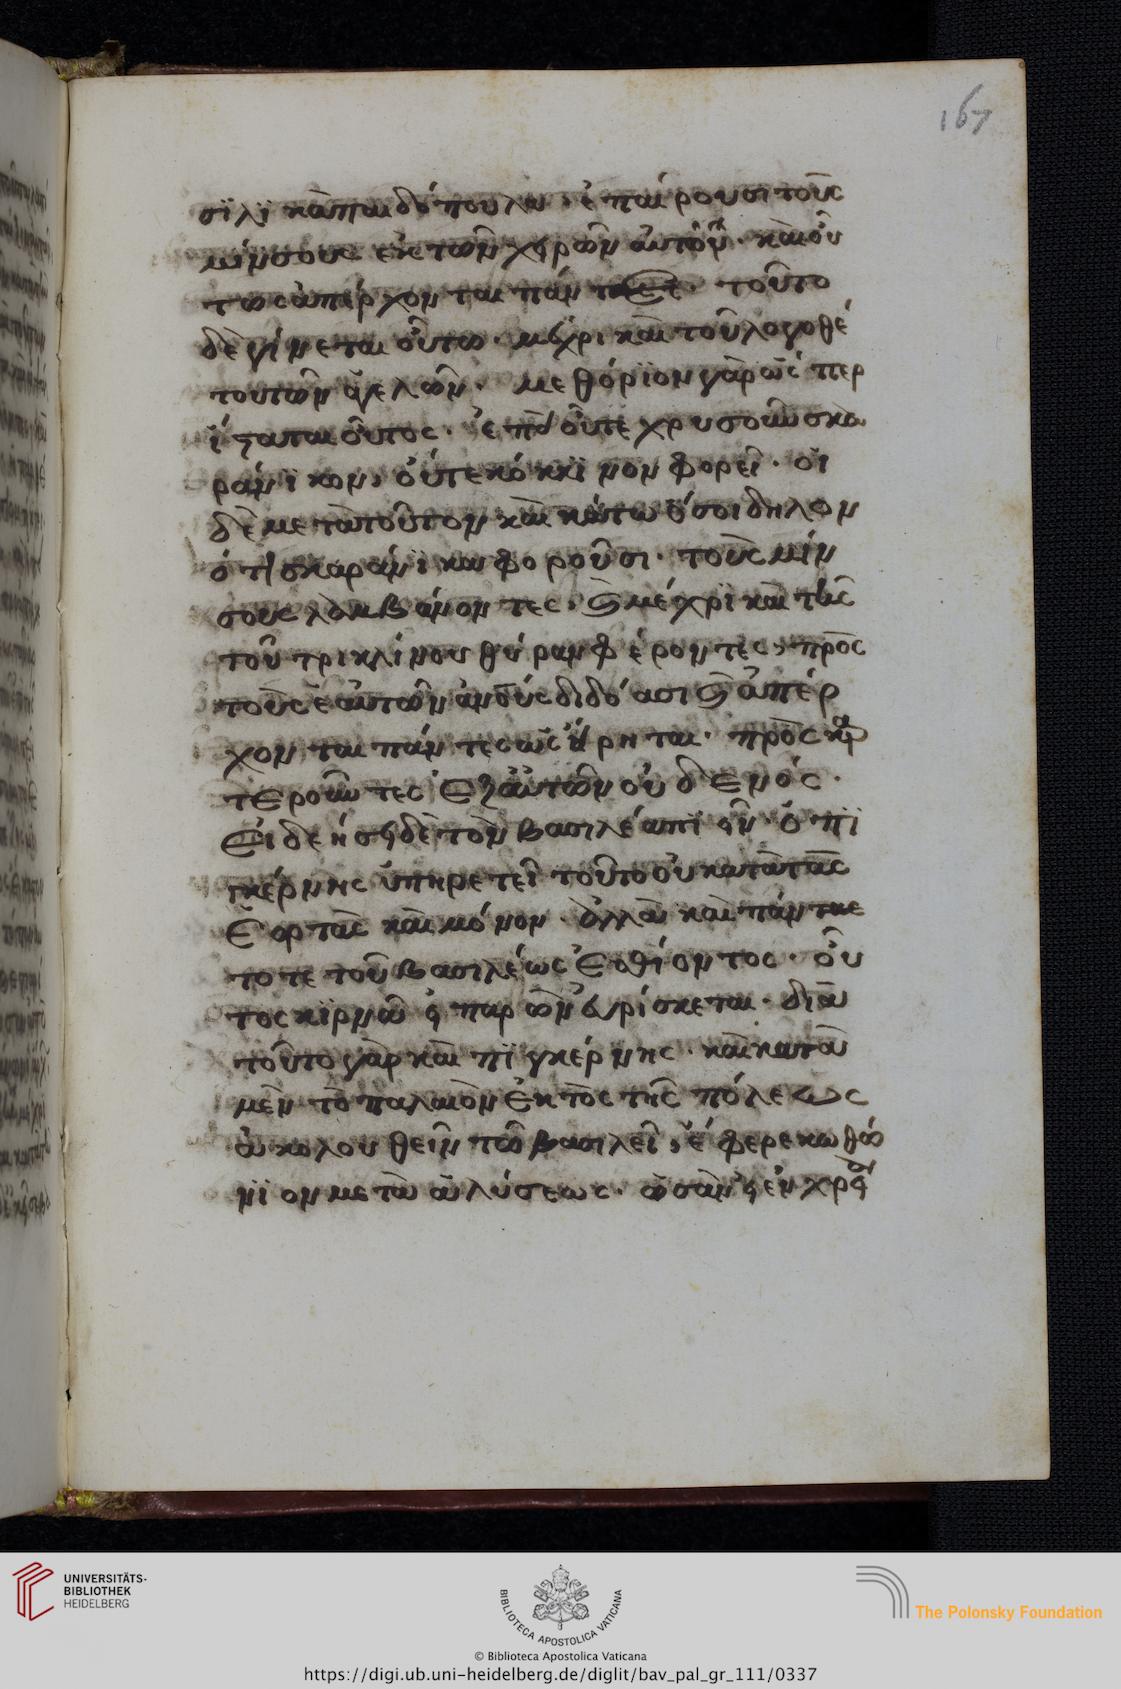 167
σϊλϊκὰ παιδόπουλα, ἐπαίρουσι τοὺς
μίνσους ἐκ τῶν χειρῶν αὐτῶν· καὶ οὕ
τως ἀπέρχονται πάντες· τοῦτο
δὲ γίνεται οὕτω· μέχρι καὶ τοῦ λογοθέ
του τῶν ἀγελῶν· μεθόριον γὰρ ὥσπερ
ἵσταται οὗτος· ἐπεὶ οὔτε χρυσοῦν σκα
ράνϊκον, οὔτε κόκκϊνον φορεῖ· οἱ
δὲ μετὰ τοῦτον καὶ κάτω ὅσοι δηλον
ότι σκαράνϊκα φοροῦσι· τοὺς μίν
σους λαμβάνοντες, καὶ μέχρϊ καὶ τῆς
τοῦ τρικλίνου θύραν φέροντες, πρὸς
τοὺς ἑαυτῶν ἀνους διδόασι καὶ ἀπέρ
χονται πάντες ὡς εἴρηται· πρὸς κρα
τεροῦντες ἐξ αὐτῶν οὐδενός·
Εἰ δεήσει δὲ τὸν βασιλέα πιεῖν· ὁ πϊ
γκέρνης ὑπηρετεῖ τοῦτο οὐ κατὰ τὰς
ἑορτὰς καὶ μόνον· ἀλλὰ καὶ πάντο
τε τοῦ βασιλέως ἐσθίοντος· οὗ
τος κϊρνῶν παρὼν εὑρίσκεται· διὰ
τοῦτο γὰρ καὶ πϊγκέρνης· καὶ κατὰ
μὲν τὸ παλαιὸν ἐκτὸς τῆς πόλεως
ἀκολουθεῖν τῶ βασιλεῖ, ἔφερε κωθώ
νϊον μετὰ ἁλύσεως·
UNIVERSITÄTS-
BIBLIOTHEK
HEIDELBERG
BIBLIOTECA APOSTOLICA VATICANA
The Polonsky Foundation
© Biblioteca Apostolica Vaticana
https://digi.ub.uni-heidelberg.de/diglit/bav_pal_gr_111/0337